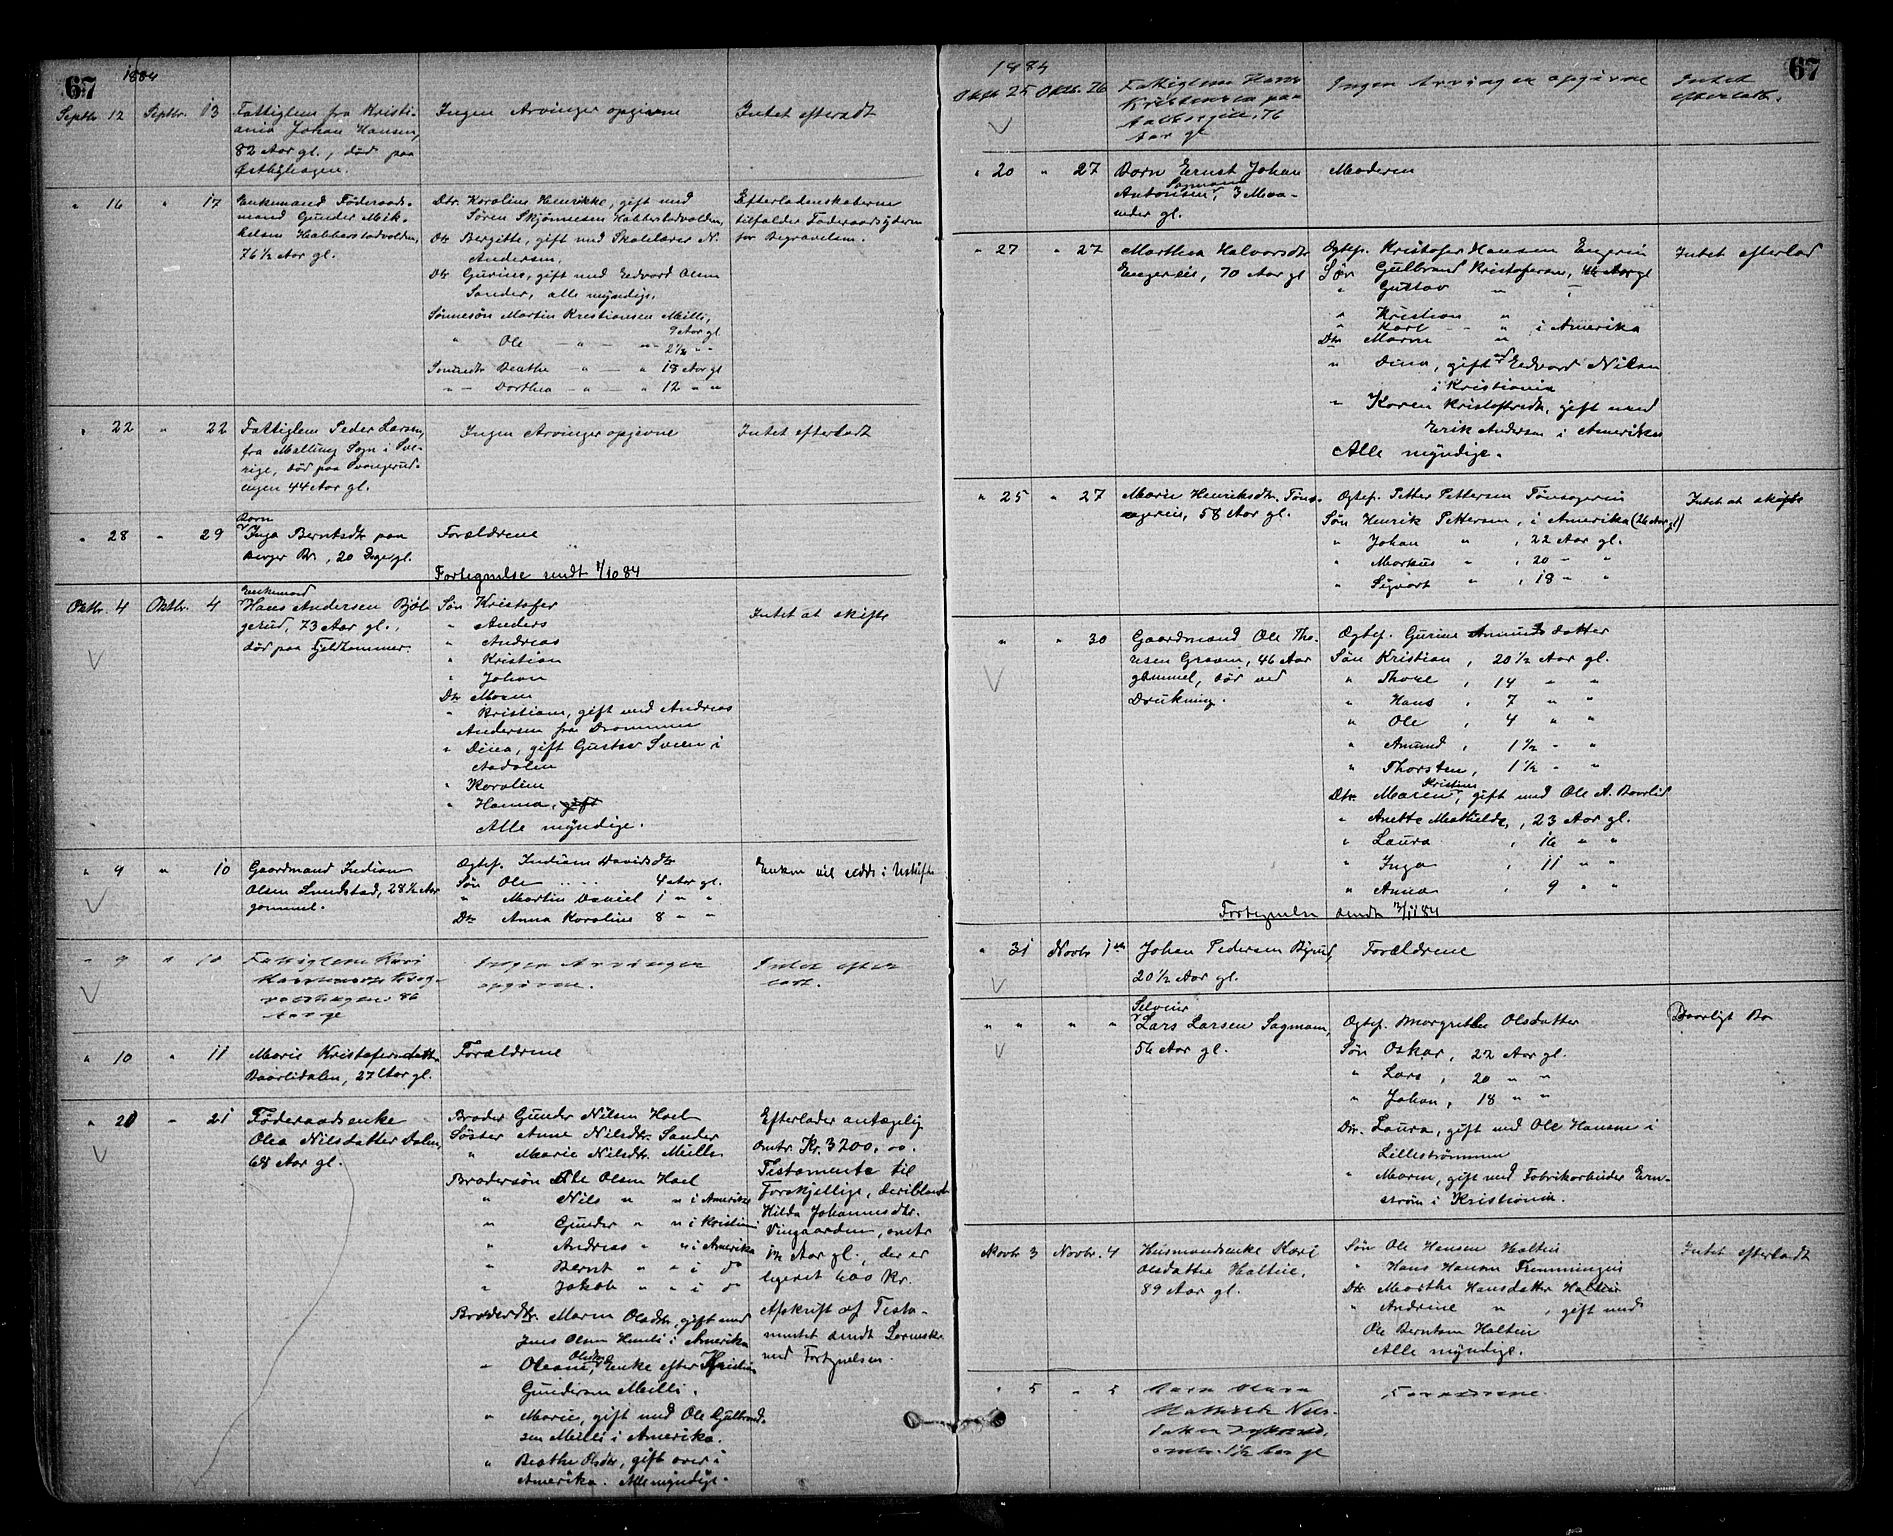 67
1884
Septbr. 12 Septbr. 13 Fattiglem fra Kristi-
ania Johan Hansen,
82 Aar gl., død paa
Østbyhagen.
Ingen Arvinger opgivne
Intet efterladt
" 16 " 17 Enkemand Føderaads-
mand Gunder Mik-
kelsen Habberstadvolden,
76 1/2 Aar gl.
Dtr. Karoline Henrikke, gift med
Søren Skjønnesen Habberstadvolden,
Dtr. Bergitte, gift med Skolelærer N.
Andersen,
Dtr Gurine, gift med Eedvard Olsen
Sander, alle myndige.
Sønnesøn Martin Kristiansen Meilli,
9 Aar gl
" Ole - " - " 2 1/2 " "
Sønnedtr Beathe - " - " 18 Aar gl
- " - Dorthea - " - " 12 " "
Efterladenskaberne
tilfalder Føderaadsyderen
for Begravelsen.
" 22 " 22 Fattiglem Peder Larsen,
fra Malling Sogn i Sve-
rige, død paa
engen 44 Aar gl.
Ingen Arvinger opgivne
Intet efterladt
" 28 " 29 Barn
Inga Berntsdtr paa
Berger Br., 20 Dage gl.
Forældrene
Fortegnelse sendt 7/10 84
Oktbr. 4 Oktbr. 4 Enkemand
Hans Andersen Bjøl-
gerud, 73 Aar gl.,
død paa Fjeldhammer.
Søn Kristofer
" Anders
" Andreas
" Kristian
" Johan
Dtr Maren
" Kristiane, gift med Andreas
Andersen fra Drammen
" Dina, gift Gustav Sveen i
Aadalen
" Karoline
" Hanna, gift
Alle myndige.
Intet at skifte
" 9 " 10 Gaardmand Indian
Olsen Lundstad, 28 1/2 Aar
gammel.
Ægtef. Indiane Davidsdtr
Søn Ole ..... 4 Aar gl.
" Martin Daniel 1 " "
Dtr Anna Karoline 8 " "
Enken vil sidde i Uskifte
" 9 " 10 Fattiglem Kari
86
Aar gl
Ingen Arvinger
opgivne.
Intet efter
ladt.
" 10 " 11 Marie Kristofersdatter
Baarlidalen, 27 Aar gl.
Forældrene
" 20 " 21 Føderaadsenke
Olea Nilsdatter Dalen,
68 Aar gl.
Broder Gunder Nilsen Hoel
Søster Anne Nilsdtr. Sander
" Marie Nilsdtr. Meilli
Brodersøn Ole Olsen Hoel
" Nils " " i Amerika
" Gunder " " i Kristiania
" Andreas " " i Amerika
" Bernt " " i do
" Jakob " " i do
Broderdtr. Maren Olsdtr, gift med
Jens Olsen i Amerika
" Oleane Olsdtr, Enke efter Kristian
Gundersen Meilli.
" Marie, gift med Ole Gulbrand-
sen Meilli i Amerika.
" Beathe Olsdtr, gift over i
Amerika. Alle myndige.
Efterlader antagelig
omtr. Kr. 3200.00.
Testamente til
Forskjellige, deriblandt
Hilda Johannesdtr.
Vingaarden, omtr
Aar gl., der er
legeret 400 Kr.
Afskrift af Testa-
mentet sendt
med Fortegnelsen.
67
1884
Oktbr 25 Oktbr. 26 Fattiglem Hans
Kristensen paa
76
Aar gl
Ingen Arvinger opgivne
Intet
efterladt.
" 20 " 27 Barn Ernst Johan
Antonsen Sagmoen, 3 Maa-
neder gl.
Moderen
" 27 " 27 Marthea Halvorsdtr
Engereie, 70 Aar gl
Ægtef. Kristofer Hansen Engereie
Søn Gulbrand Kristofersen, 44 Aar gl
" Gustav " -
" Kristian "
" Karl - - " i Amerika
Dtr Maren "
" Dina, gift med Eedvard Nilsen
i Kristiania
" Karen Kristofersdtr. gift med
Erik Andersen i Amerika
Alle myndige.
Intet efterlad
" 25 " 27 Marie Henriksdtr. Tøns-
agereie, 58 Aar gl.
Ægtef. Petter Pettersen Tønsagereie
Søn Henrik Pettersen, i Amerika (26 Aar gl)
" Johan " , 22 Aar gl.
" Markus " , 20 - "
" Sigvart " , 18 - "
Intet at skifte
" " 30 Gaardmand Ole Tho-
resen Graven, 46 Aar
gammel, død ved
Drukning.
Ægtef. Gurine Amundsdatter
Søn Kristian, 20 1/2 Aar gl.
" Thore, 14 " "
" Hans, 7 " "
" Ole, 4 " "
" Amund, 1 1/2 - "
" Thorsten, 1 1/2 - "
Dtr. Maren Kristine, gift med Ole A. Baarlid
" Anette Mathilde, 23 Aar gl.
" Laura, 16 " "
" Inga, 11 " "
" Anna, 9 " "
Fortegnelse sendt 12/11 84
" 31 Novbr 1ste Johan Pedersen Byrud,
20 1/2 Aar gl.
Forældrene
" " " " Selveier
Lars Larsen Sagmoen,
56 Aar gl.
Ægtef. Margrethe Olsdatter
Søn Oskar, 22 Aar gl.
" Lars, 20 " "
" Johan, 18 " "
Dtr. Laura, gift med Ole Hansen i
Lillestrømmen
" Maren, gift med Fabrikarbeider Ern-
strøm i Kristiania.
Daarligt Bo
Novbr 3 Novbr. 4 Husmandsenke Kari
Olsdatter Haltvie.
89 Aar gl.
Søn Ole Hansen Haltvie
" Hans Hansen
Dtr Marthe Hansdatter Haltvie
" Andrine " , gift med
Ole Berntsen Haltvie
Alle myndige.
Intet efterladt
" 5 " 5 Barn
1 1/2 Aar gl
Forældrene.